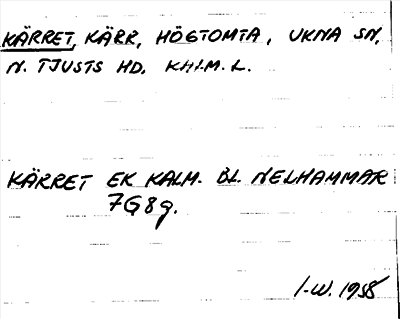 KÄRRET, KÄRR, HÖGTOMTA, UKNA SN,
N. TJUSTS HD. KALM. L.
KÄRRET EK KALM. BL. NELHAMMAR
7G8g.
I-W. 1958